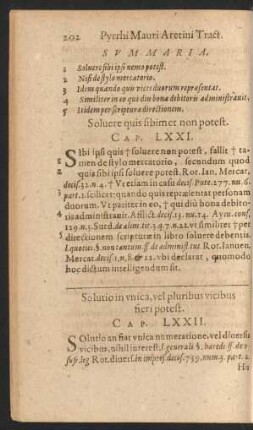 202 Pyrrhi Mauri Aretini Tract.
SVMMARIA.
1 Soluere sibi ipsi nemo potest.
2 Nisi de stylo mercatorio.
3 Idem quando quis vices duorum repræsentat.
4 Similiter in eo qui diu bona debitoris administrauit.
5 Itidem per scripturæ directionem.
Soluere quis sibimet non potest.
CAP. LXXI.
SIbi ipsi quis † soluere non potest, fallit † ta-
men de stylo mercatorio, secundum quod
quis sibi ipsi soluere potest. Rot. Ian. Mercat.
decis. 32. n. 4. † Vt etiam in casu decis. Pute. 277. nu. 6.
part. 2. scilicet quando quis repræsentat personam
duorum. Vt pariter in eo, † qui diu bona debito-
ris administrauit. Afflict. decis. 13. nu. 14. Aym. cons.
129. n. 3. Surd. de alim. tit. 
directionem scripturæ in libro soluere debentis.
l. quoties §. non tantum ff. de administ. tut. Rot. Ianuen.
Mercat. decis. 1. n. 8. & 12. vbi declarat, quomodo
hoc dictum intelligendum sit.
Solutio in vnica, vel pluribus vicibus
fieri potest.
CAP. LXXII.
SOlutio an fiat vnica numeratione, vel diuersis
vicibus, nihil interest, l. generali §.
Rot. diuers. in impres. decis. 759. num. 3. part. 2.
Ho